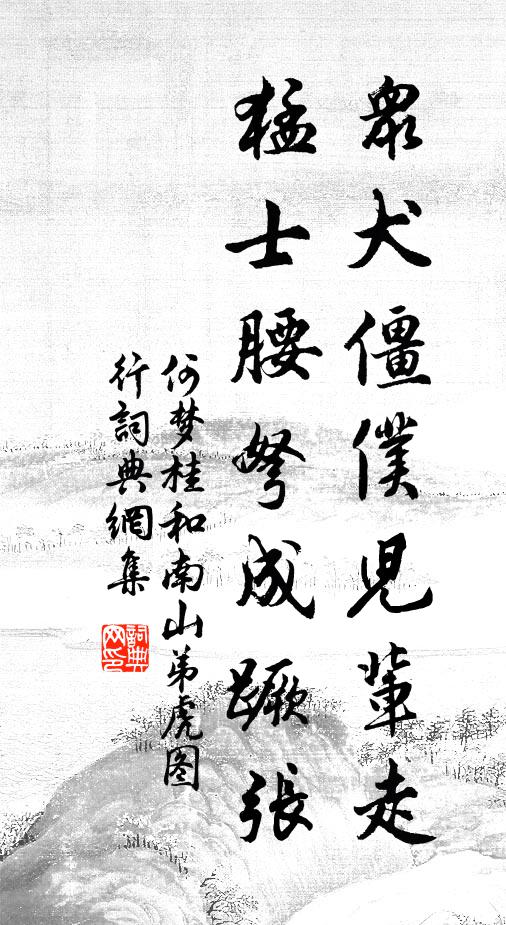 眾犬僵僕兒輩走
猛士腰弩成蹶張
何梦桂和南山弟虎图
行詞典網集
詞典网印